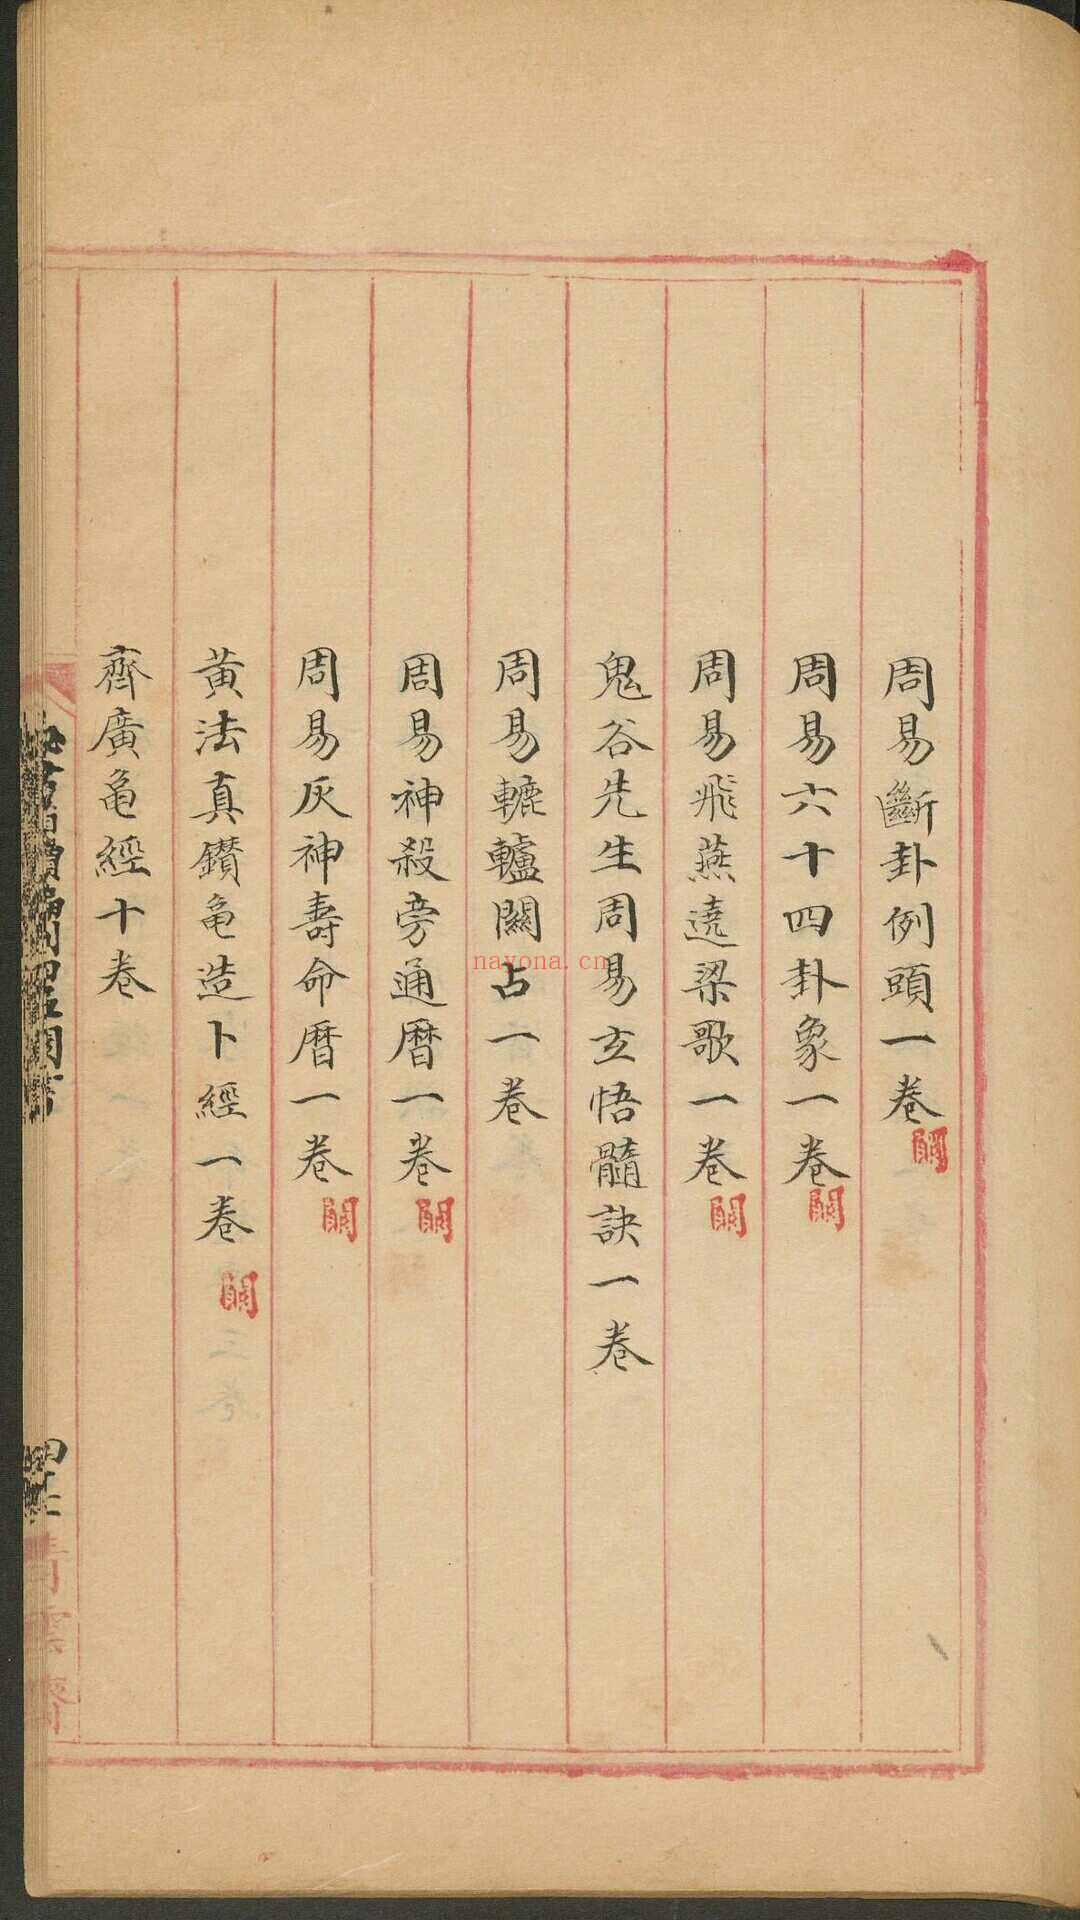 周易斷卦例頭一卷闕
周易六十四卦象一卷闕
周易飛燕遶梁歌一卷闕
鬼谷先生周易玄悟髓訣一卷
周易轆轤關占一卷
周易神殺旁通曆一卷闕
周易灰神壽命曆一卷闕
黃法真鑽龜造卜經一卷闕
齊廣龜經十卷
青雲齋
nayona.cn